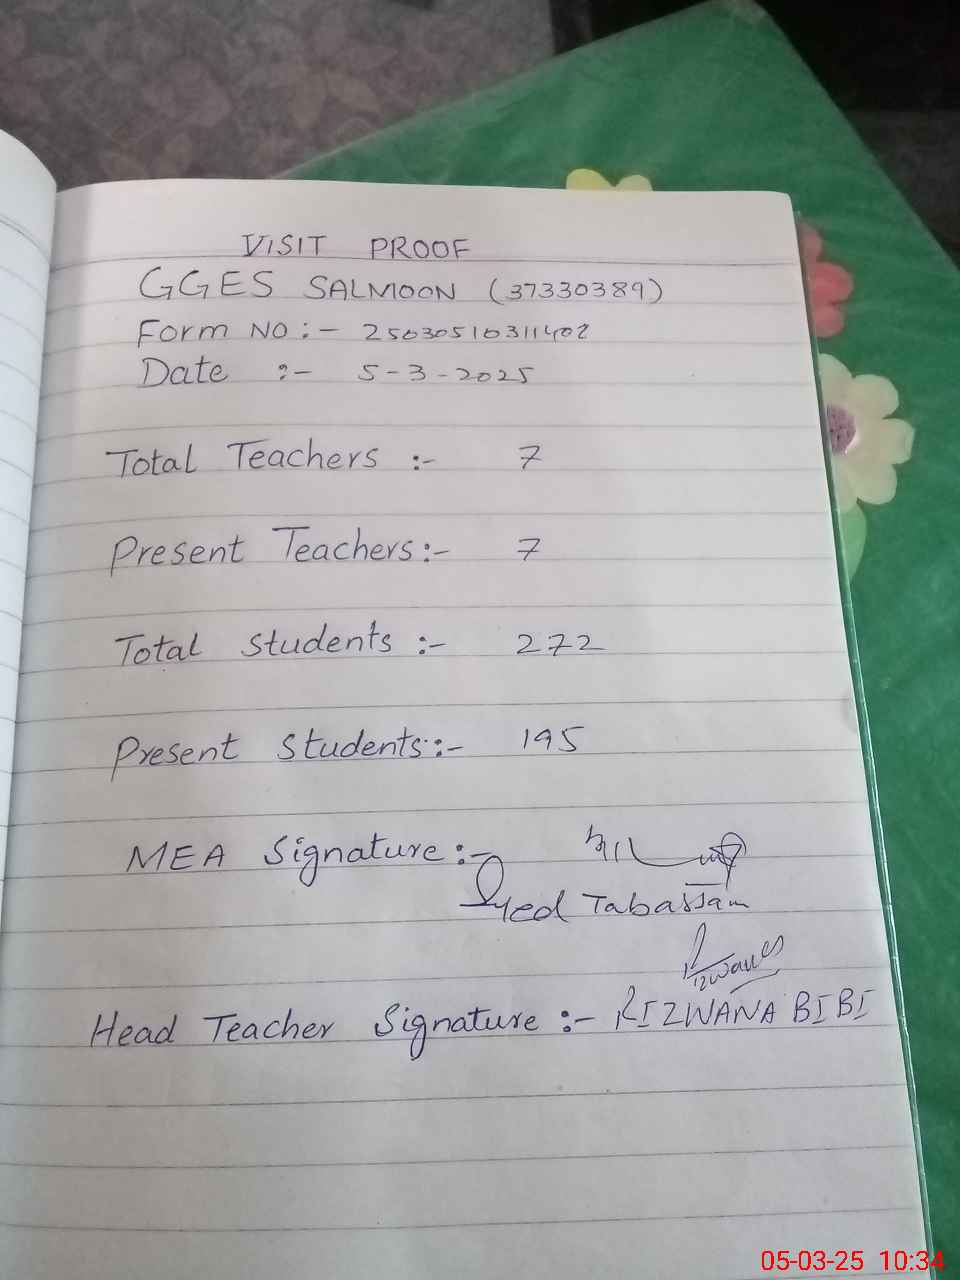 VISIT PROOF
GGES SALMOON (37330389)
Form NO :- 250305103111402
Date :- 5-3-2025
Total Teachers :- 7
Present Teachers:- 7
Total Students :- 272
Present Students:- 195
MEA Signature:-
Syed Tabassam
Rizwana
Head Teacher Signature :- RIZWANA BIBI
05-03-25 10:34